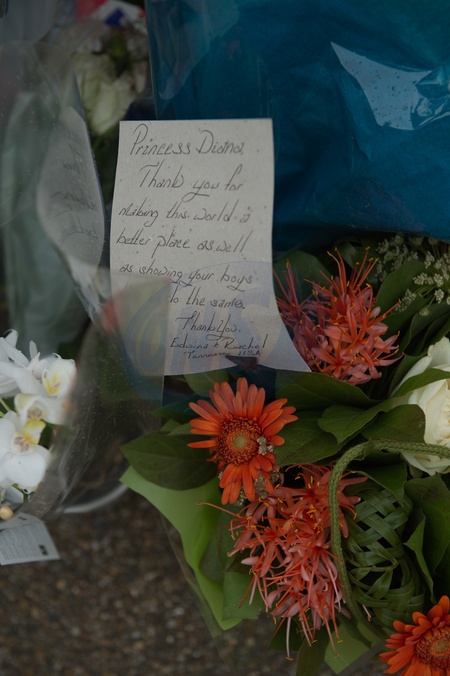 Princess Diana
Thank you for
making this world a
better place as well
as showing your boys
to the same.
Thank you.
Edwina & Raechel
Tennessee USA